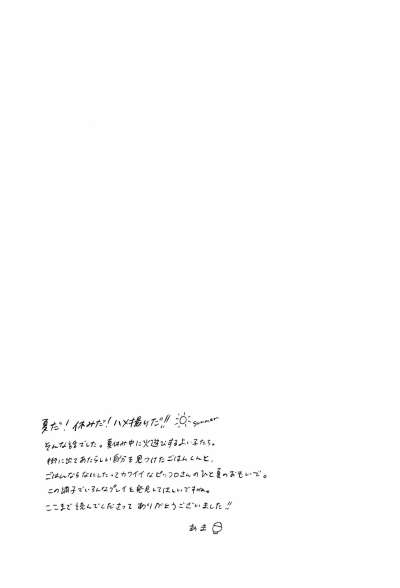 夏だ！休みだ！ハメ撮りだ!! summer
そんな絵でした。夏休み中に火遊びするよい子たち。
街に出てあたらしい自分を見つけたごはんくんと、
ごはんならなにしたってカワイイなピッコロさんのひと夏のおもいで。
この調子でいろんなプレイを発見してほしいですね。
ここまで読んでくださって ありがとうございました!!